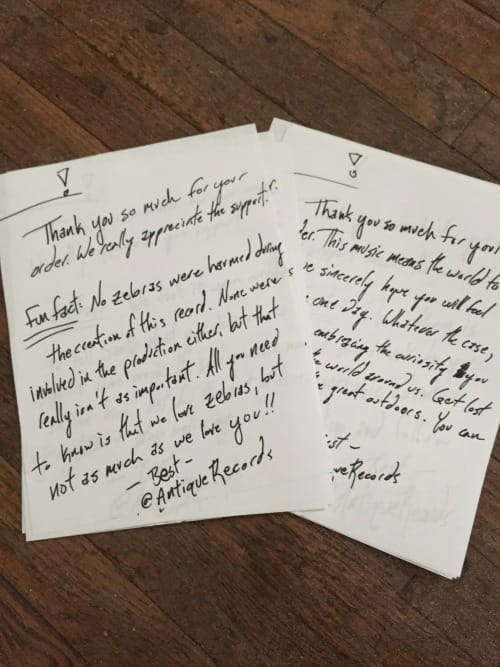 Thank you so much for your
order. We really appreciate the support.
Fun fact: No zebras were harmed during
the creation of this record. None were
involved in the production either, but that
really isn't as important. All you need
to know is that we love zebras, but
not as much as we love you!!
- Best -
@AntiqueRecords
Thank you so much for your
er. This music means the world to
sincerely hope you will feel
one day. Whatever the case,
embracing the curiosity you
world around us. Get lost
great outdoors. You can
st -
queRecords